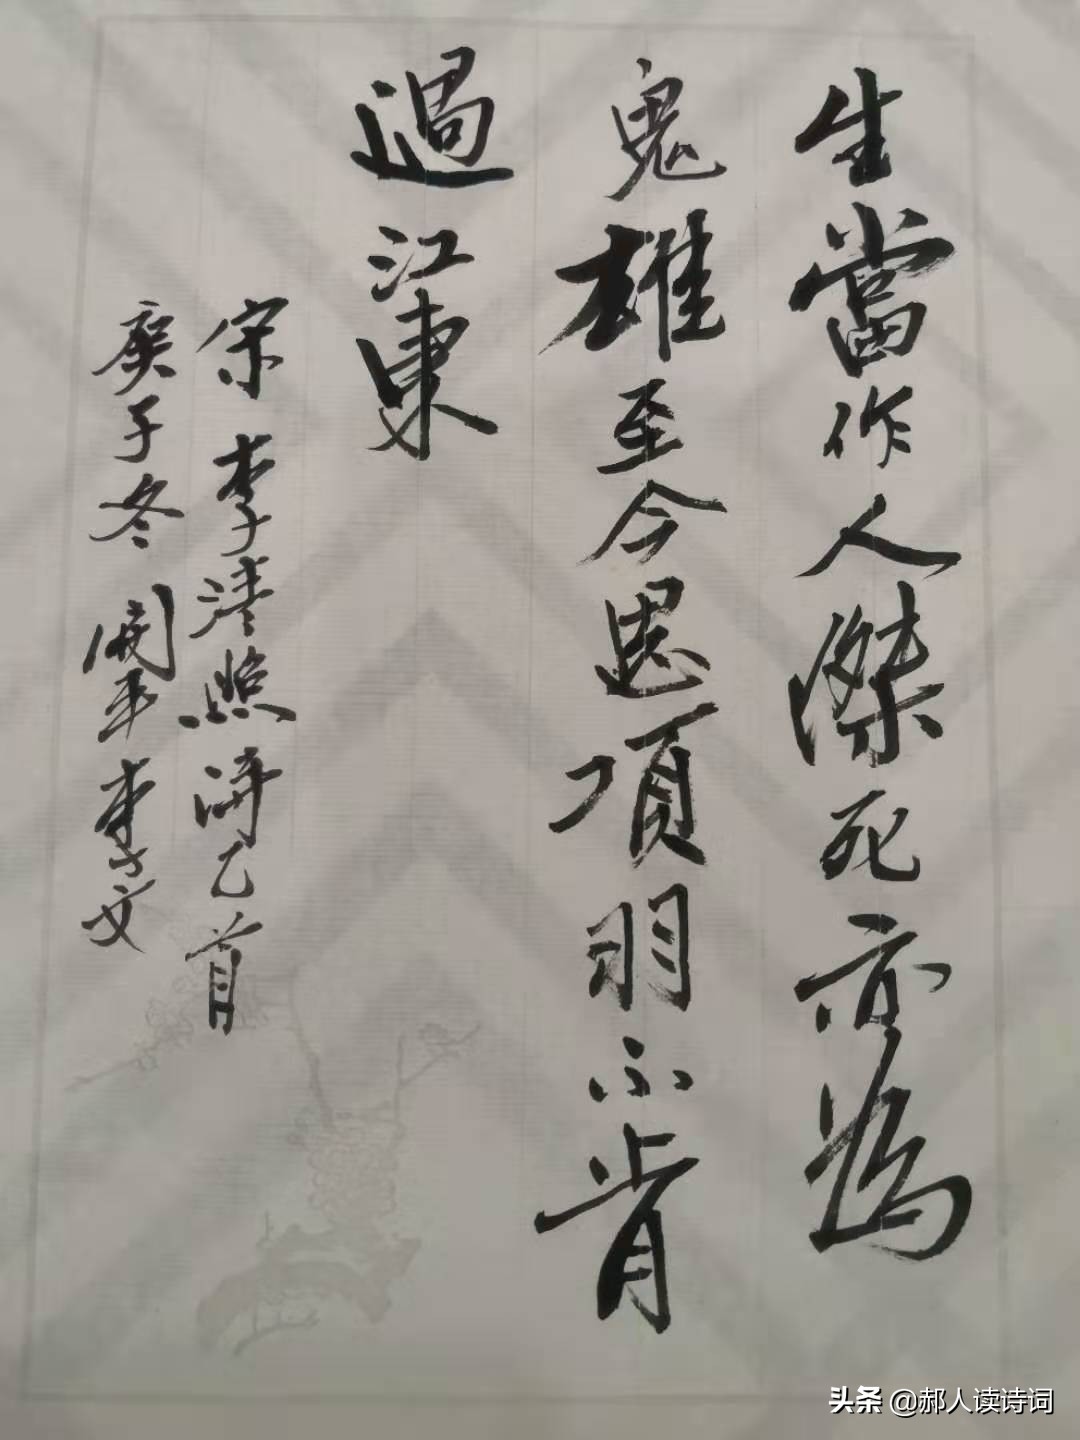 生當作人傑死亦為
鬼雄至今思項羽不肯
過江東
宋李清照詩乙首
庚子冬開平李文
头条 @郝人读诗词